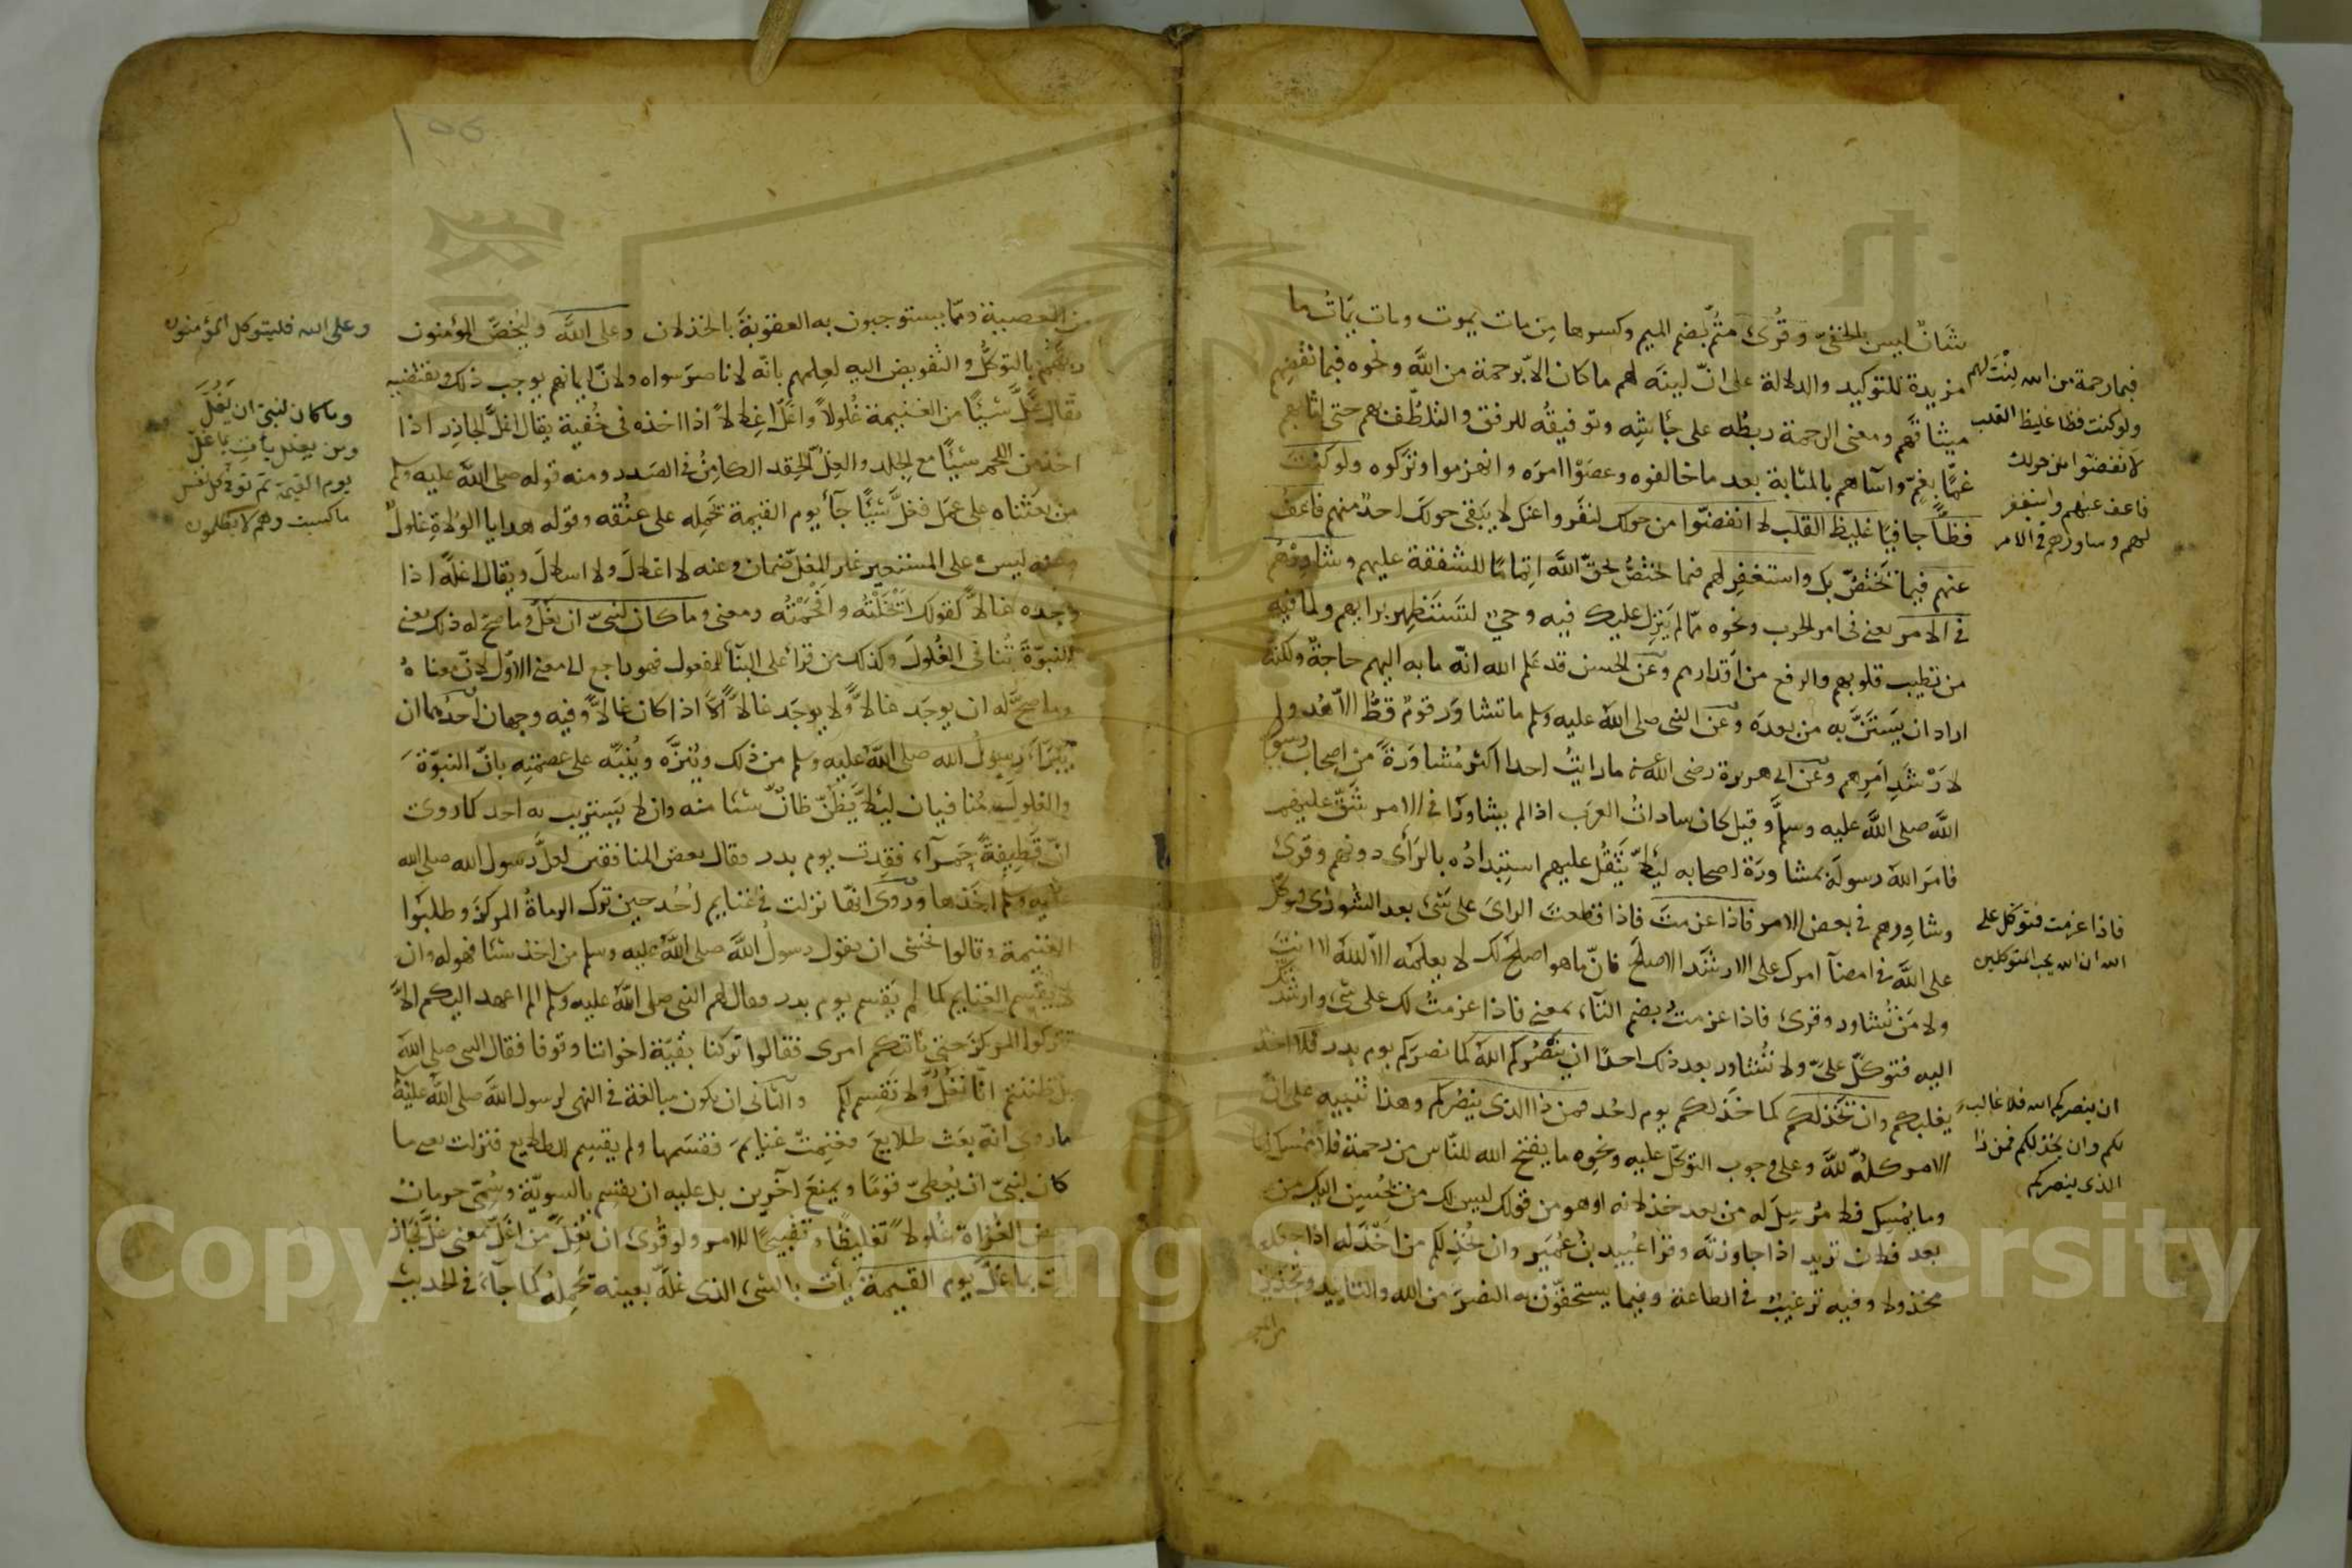 شَانٌ ليس بالخفىّ وقُرئ متُّم بضم الميم وكسرها مِن مات يموت ومات يَمَاتُ ما
مزيدة للتوكيد والدلالة على انّ لينَه لهم ما كان الا برحمة من اللّه ونحوه فبما نقضِهم
ميثاقَهم ومعنى الرحمة ربطُه على جأشِه وتوفيقُه للرفق والتلطّف بهم حتى اثابهم
غمًّا بغمّ وآساهم بالمثابة بعد ما خالفوه وعصَوْا امرَه وانهزموا وتركوه ولو كنت
فظًّا جافيًا غليظ القلب لانفضّوا من حولك لتفرقوا عنك لا يبقى حولك احدٌ منهم فاعف
عنهم فيما يَختصّ بك واستغفِر لهم فيما يختصُّ بحقّ اللّه اِتمامًا للشفقة عليهم وشاوِرْهُم
فى الامر يعنى فى امر الحرب ونحوه ممّا لم يَنزِل عليك فيه وحىٌ لتَستظهِر برايهم ولما فيه
من تطييب قلوبهم والرفع من اَقدارهم وعن الحسن قد علم الله انّه ما به اليهم حاجةٌ ولكنّه
اراد ان يَستَنَّ به مَن بعدَه وعن النبى صلى اللّه عليه وسلم ما تشاوَر قومٌ قطُّ الّا هُدوا
لاَرْشَدِ اَمرِهم وعن ابى هريرة رضى اللّه عنه ما رايتُ احدا اكثر مُشاوَرةً مِن اصحاب رسول
اللّه صلى اللّه عليه وسلم وقيل كان ساداتُ العرَب اذا لم يشاوَروا فى الامر شَقّ عليهم
فامَر اللّه رسولَه بمشاورَة اصحابه لئَلّا يَثقُل عليهم استِبْدادُه بالرّأى دونهم وقرئ
وشاوِرهم فى بعض الامر فاذا عزمتَ فاذا قطعتَ الراىَ على شىء بعد الشورى فتوكّل
على اللّه فى امضآ امرك على الارشَد الاصلح فانّ ما هو اصلحُ لك لا يعلمُه الّا اللّه لا انتَ
ولا مَن تُشاور وقرئ فاذا عزمتُ بضم التآء بمعنى فاذا عزمتُ لك على شئ وارشدتُك
اليه فتوكّل علىّ ولا تُشاور بعد ذلك احدًا ان ينصُركم اللّه كما نصرَكم يوم بدر فلا احدَ
يغلبكم وان يخذلكم كما خذَلكم يوم اُحُد فمن ذا الذى ينصُركم وهذا تنبيه على انّ
الامر كلّه للّه وعلى وجوب التوكّل عليه ونحوه ما يفتح الله للنّاس من رحمة فلا مُمسِك لها
وما يُمسِك فلا مُرسِلَ له من بعد خذلانه او هو من قولك ليس لك من يُحسِن اليك من
بعد فلان تريد اذا جاوزتَه وقرأ عُبيد بن عُمَير وان يُخذِلكم من اَخْذَله اذا جعله
مخذولا وفيه ترغيبٌ فى الطاعة وفيما يستحقّون به النصرَ من الله والتاييد وتحذير
من الم
فبما رحمة من الله لِنْتَ لهم
ولو كنت فظا غليظ القلب
لانفضّوا من حولك
فاعف عنهم واستغفر
لهم وشاورهم فى الامر
فاذا عزمت فتوكل على
الله ان الله يحب المتوكلين
ان ينصركم الله فلا غالب
لكم وان يخذلكم فمن ذا
الذى ينصركم
١٥٥
من المعصية وممّا يستوجبون به العقوبةَ بالخذلان وعلى اللّه وليَخُصَّ المؤمنون
ربّهم بالتوكُّل والتفويض اليه لعِلمهم بانّه لا ناصرَ سواه ولانّ ايمانهم يوجب ذلك ويقتضيه
يقال غَلّ شيئًا من الغنيمة غُلولًا واغَلّ اِغلالًا اذا اخذه فى خُفية يقال اغلَّ الجازِر اذا
اخذ من اللحم شيئًا مع الجلد والغِلُّ الحِقد الكامِنُ فى الصّدر ومنه قوله صلى اللّه عليه وسلم
من بعَثناه على عمَل فغلَّ شيئًا جآء يوم القيمة يَحمِله على عنُقه وقوله هدايا الوُلاةِ غلولٌ
وعنه ليس على المستعير غير المُغلّ ضمان وعنه لا اغلالَ ولا اسلالَ ويقال اغلّه اذا
وجَده غالًّا كقولك ابْخَلْتُه وافْحَمْتُه ومعنى وما كان لنبىّ ان يغُلّ وما صحّ له ذلك يعنى
انّ النبوّةَ تُنافى الغُلولَ وكذلك من قرأ على البنآء للمفعول فهو راجع الى معنى الاوّل لانّ معناهُ
وما صحَّ له ان يوجَد غالًّا ولا يوجَد غالًّا اِلّا اذا كان غالًّا وفيه وجهان احدُهما ان
يُبَرَّأَ رسولُ الله صلى اللّه عليه وسلم من ذلك ويُنزَّه ويُنبَّه على عصمتِه بانّ النبوّةَ
والغلولَ مُتنافيان لئَلّا يَظُنّ ظانٌّ شئًا منه وان لا يَستريب به احد كما روى
انّ قَطيفةً حمرآءَ فُقِدت يوم بدر فقال بعض المنافقين لعلّ رسول الله صلى الله
عليه وسلم اخَذها وروى انّها نزلت فى غنايم اُحُد حين ترك الرماةُ المركزَ وطلبوا
الغنيمة وقالوا نخشى ان يقول رسولُ اللّه صلى اللّه عليه وسلم من اخذ شئًا فهو له وان
لا يَقسِم الغنايم كما لم يَقسِم يوم بدر فقال لهم النبى صلى اللّه عليه وسلم الم اعهد اليكم الّا
تتركوا المركزَ حتى ياتيكم امرى فقالوا تركنا بقيّة اخواننا وقوفا فقال النبى صلى اللّه
بل ظننتم انّا نَغُلُّ ولا نَقسِم لكم والثانى ان يكون مبالغة فى النهى لرسول اللّه صلى اللّه عليه
ما روى انّه بعَث طلايعَ فغنِمتْ غنايمَ فقسَمها ولم يقسِم للطلايع فنزلت يعنى ما
كان لنبىّ ان يُعطىَ قومًا ويمنعَ آخرين بل عليه ان يقسِم بالسويّة وسُمّى حرمانُ
بعض الغُزاة غُلولًا تغليظًا وتقبيحًا للامر ولو قُرئ ان يُغِلَّ من اغلّ بمعنى غلّ لجاز
يأتِ بما غلّ يوم القيمة يأت بالشئ الذى غلّه بعينه يَحمِلُه كما جآء فى الحديث
وعلى الله فليتوكل المؤمنون
وما كان لنبى ان يَغُلّ
ومن يغلل يأت بما غلّ
يوم القيمة ثم توفى كل نفس
ما كسبت وهم لا يظلمون
Copyright © King Saud University